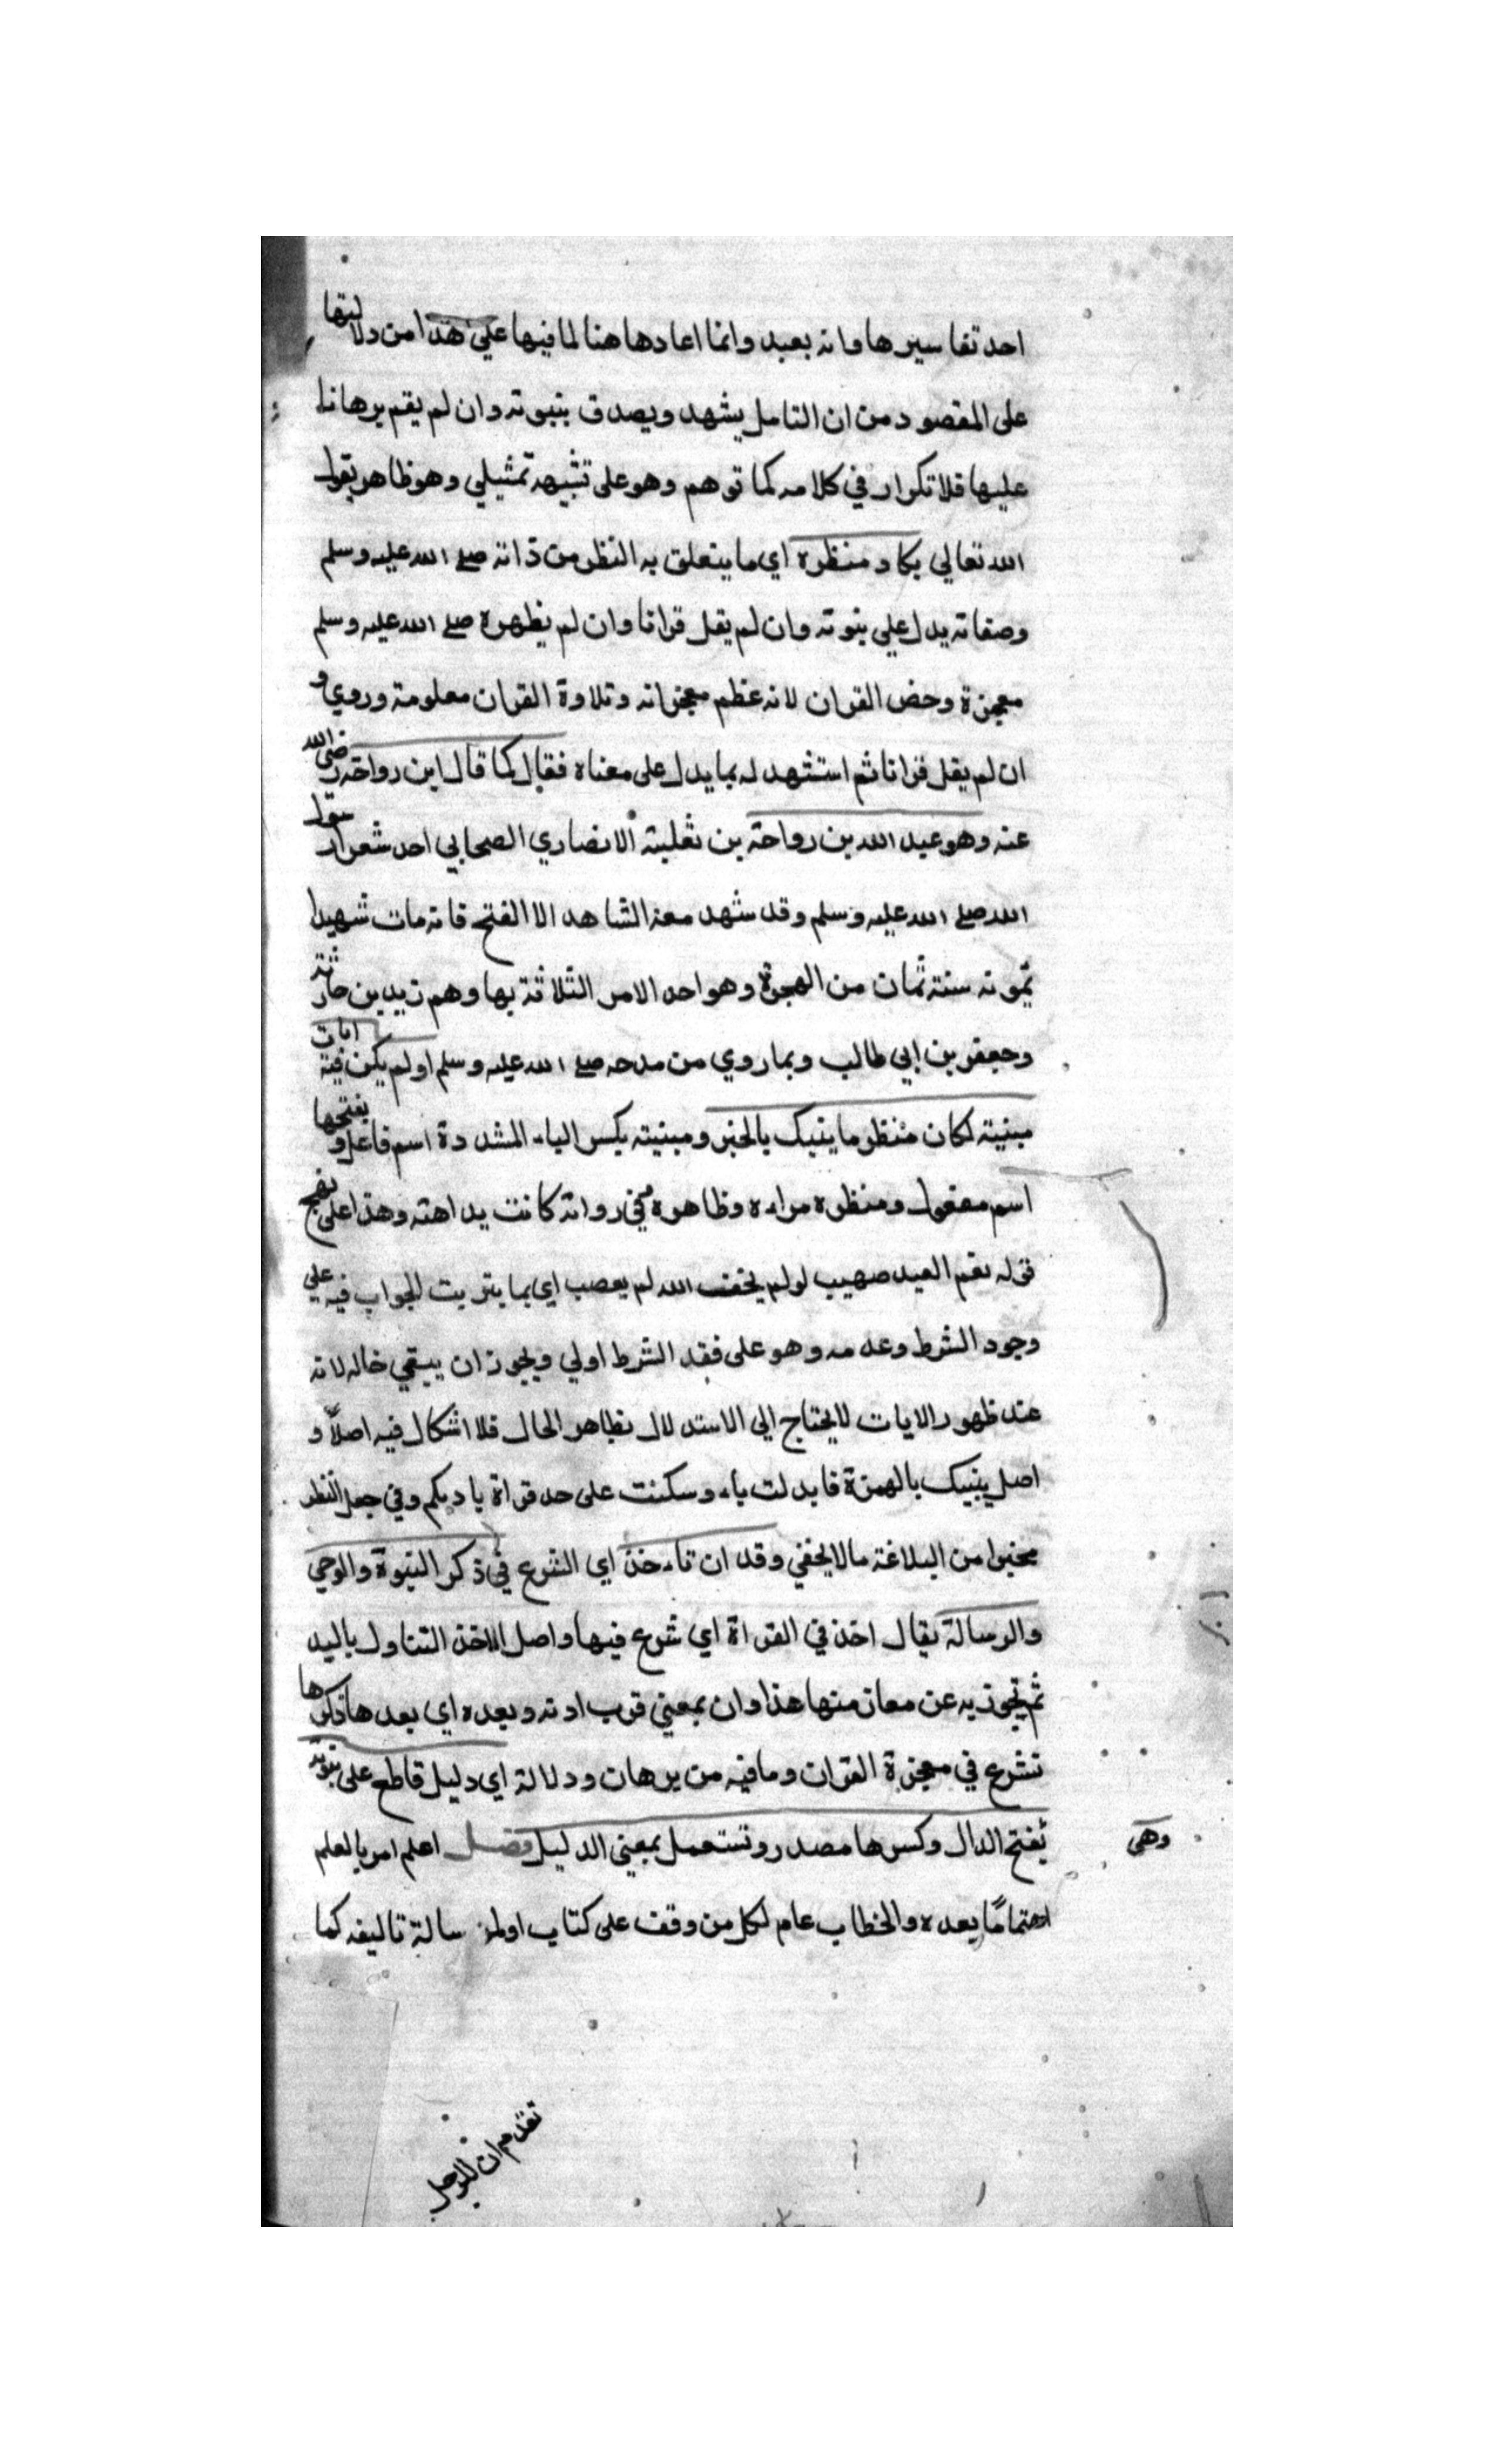 احد تفاسيرها وانه بعيد وانما اعادها هنا لما فيها على هذا من دلالتها
على المقصود من ان التامل يشهد ويصدق بنبوته وان لم يقم برهانا
عليها فلا تكرار في كلامه كما توهم وهو على تشبيه تمثيلي وهو ظاهر يقول
الله تعالى يكاد منظره اي ما يتعلق به النظر من ذاته صلى الله عليه وسلم
وصفاته يدل علي نبوته وان لم يقل قرانا وان لم يظهره صلى الله عليه وسلم
معجزة وخص القران لانه عظم معجزاته وتلاوة القران معلومة وروي و
ان لم يقل قرانا ثم استشهد له بما يدل على معناه فقال كما قال ابن رواحة رضي الله
عنه وهو عبد الله بن رواحة بن ثعلبة الانصاري الصحابي احد شعرا رسول
الله صلى الله عليه وسلم وقد شهد معه الشاهد الا الفتح فانه مات شهيدا
بموته سنة ثمان من الهجرة وهو احد الامر الثلاثة بها وهم زيد بن حارثة
وجعفر بن ابي طالب وبما روي من مدحه صلى الله عليه وسلم او لم يكن فيه ايات
مبنية لكان منظر ما ينبيك بالخبر ومبنية بكسر الياء المشددة اسم فاعل وبفتحها
اسم مفعول ومنظره مراه وظاهره في رواية كانت بداهته وهذا على نهج
قوله نعم العبد صهيب لو لم يخف الله لم يعصه اي بما يترتب الجواب فيه على
وجود الشرط وعدمه وهو على فقد الشرط اولي ويجوز ان يبقي حاله لانه
عند ظهور الايات لا يحتاج الى الاستدلال بظاهر الحال فلا اشكال فيه اصلاً و
اصل ينبيك بالهمزة فابدلت ياء وسكنت على حد قراة باديكم وفي جعل النظر
مخبرا من البلاغة ما لا يخفي وقد ان ناخذ اي الشرع في ذكر النبوة والوحي
والرسالة يقال اخذ في القراة اي شرع فيها واصل الاخذ التناول باليد
ثم تجوز به عن معان منها هذا وان بمعني قرب اوته وبعده اي بعد ها ذكرها
نشرع في معجزة القران وما فيه من برهان ودلالة اي دليل قاطع على نبوته
وهى
بفتح الدال وكسرها مصدر وتستعمل بمعنى الدليل فصل اعلم امر بالعلم
اهتمامًا بعده والخطاب عام لكل من وقف على كتاب اولمن سالة تاليفه كما
تقدم ان للرجل